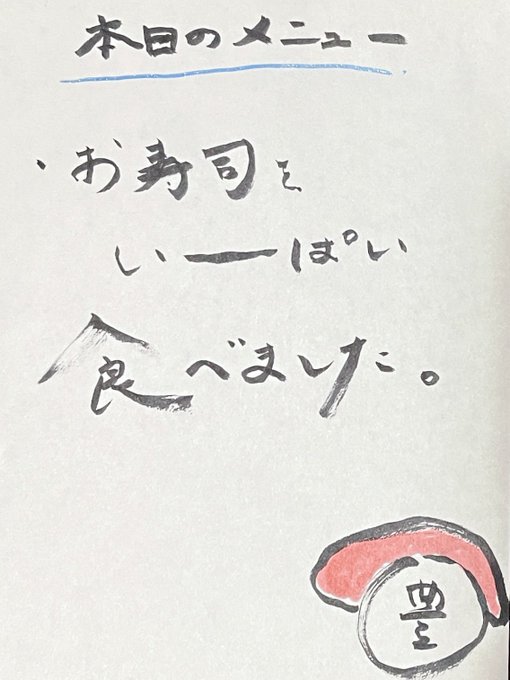 本日のメニュー
・お寿司を
いーぱい
食べました。
豊